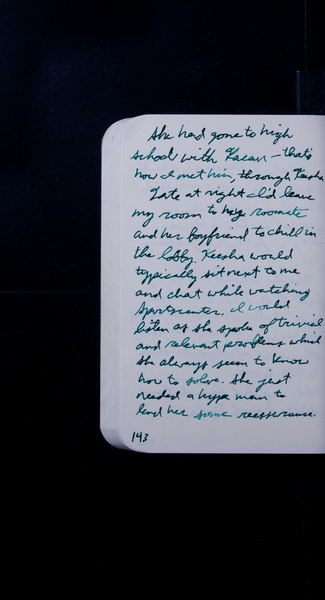 She had gone to high
school with Kacan – that's
how I met him, through Keesha
Late at night I'd leave
my room to my roomate
and her boyfriend to chill in
the lobby. Keesha would
typically sit next to me
and chat while watching
Sportscenter. I would
listen as she spoke of trivial
and relevant problems which
she always seem to know
how to solve. She just
needed a hype man to
lend her some reassurance.
143